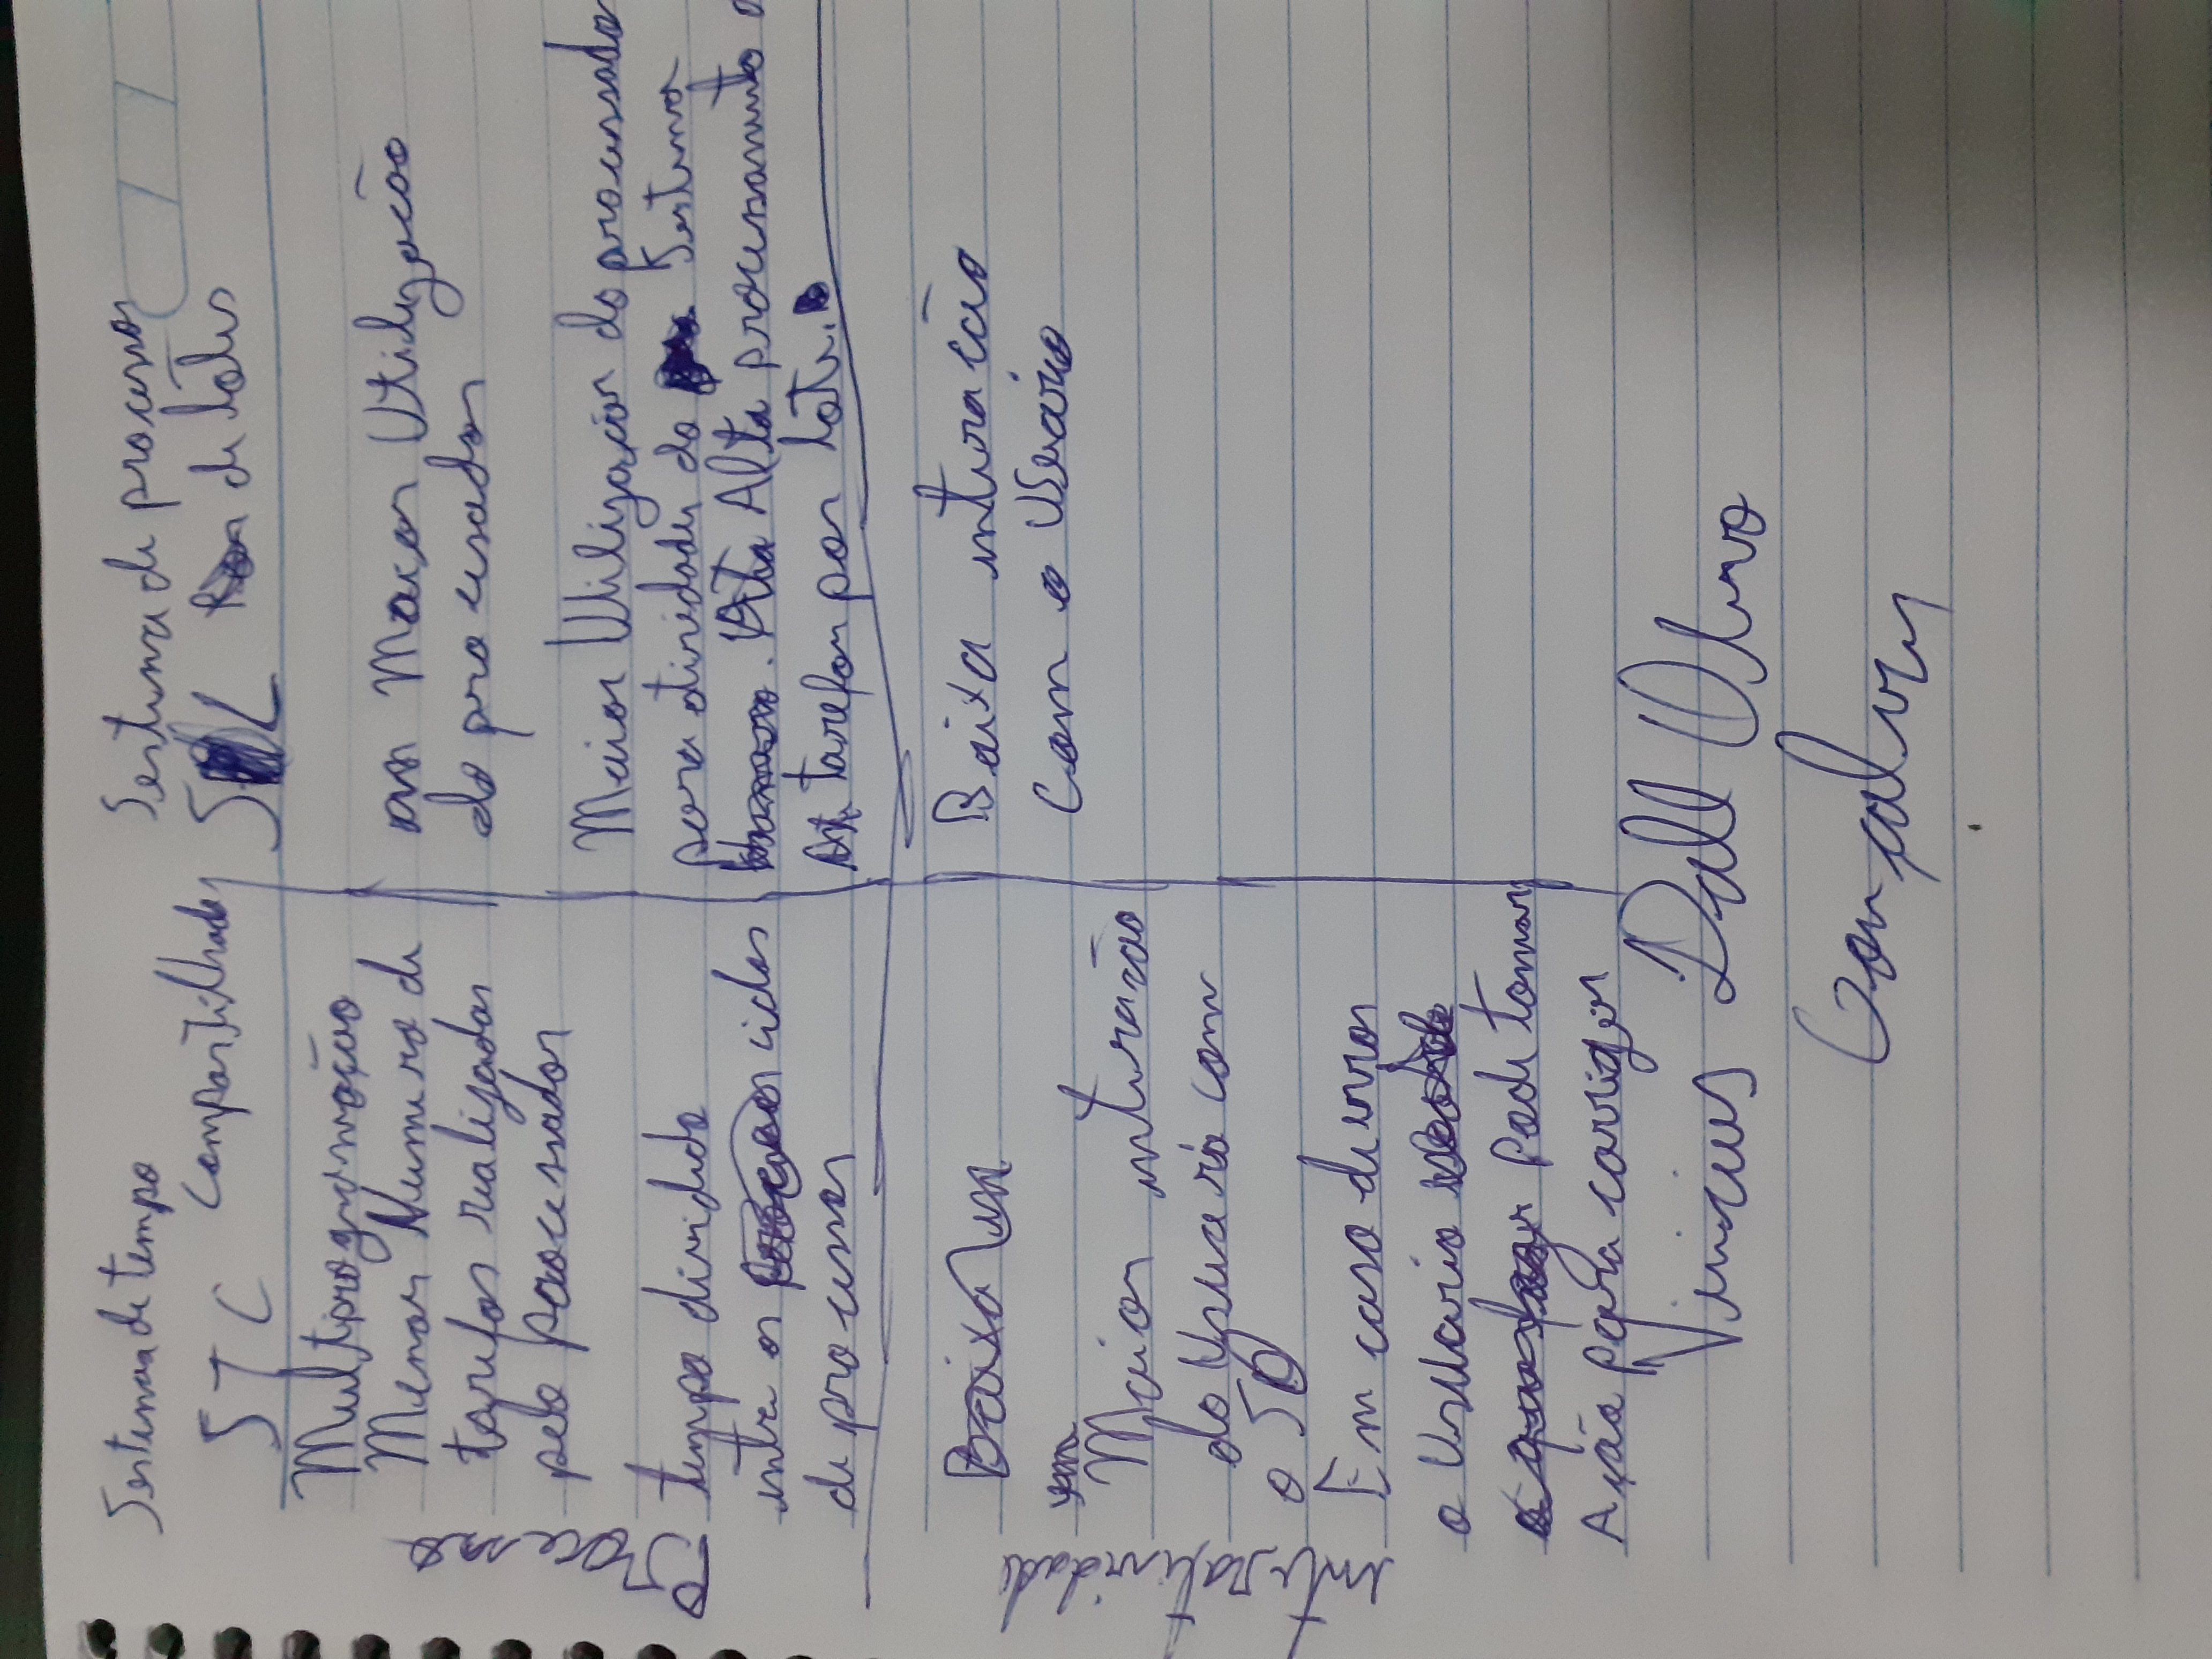 Sistema de tempo
Compartilhado
STC
Processo
Multiprogramação
Menor Numero de
tarefas realizadas
pelo processador
tempo dividido
entre os ciclos
de processos
Sistema de processo
S L de lotes
Maior Utilização
do processador
Maior Utilização do processador
para atividades do Sistema
. Alta Processamento
tarefas por lote.
interatividade
Baixa
Maior interação
do Usuario com
o SO
Em caso de erros
o Usuario
Pode tomar
Ação para corrigir
Baixa interação
Com o Usuário
Vinicius Dall Olivo
Gonçalves